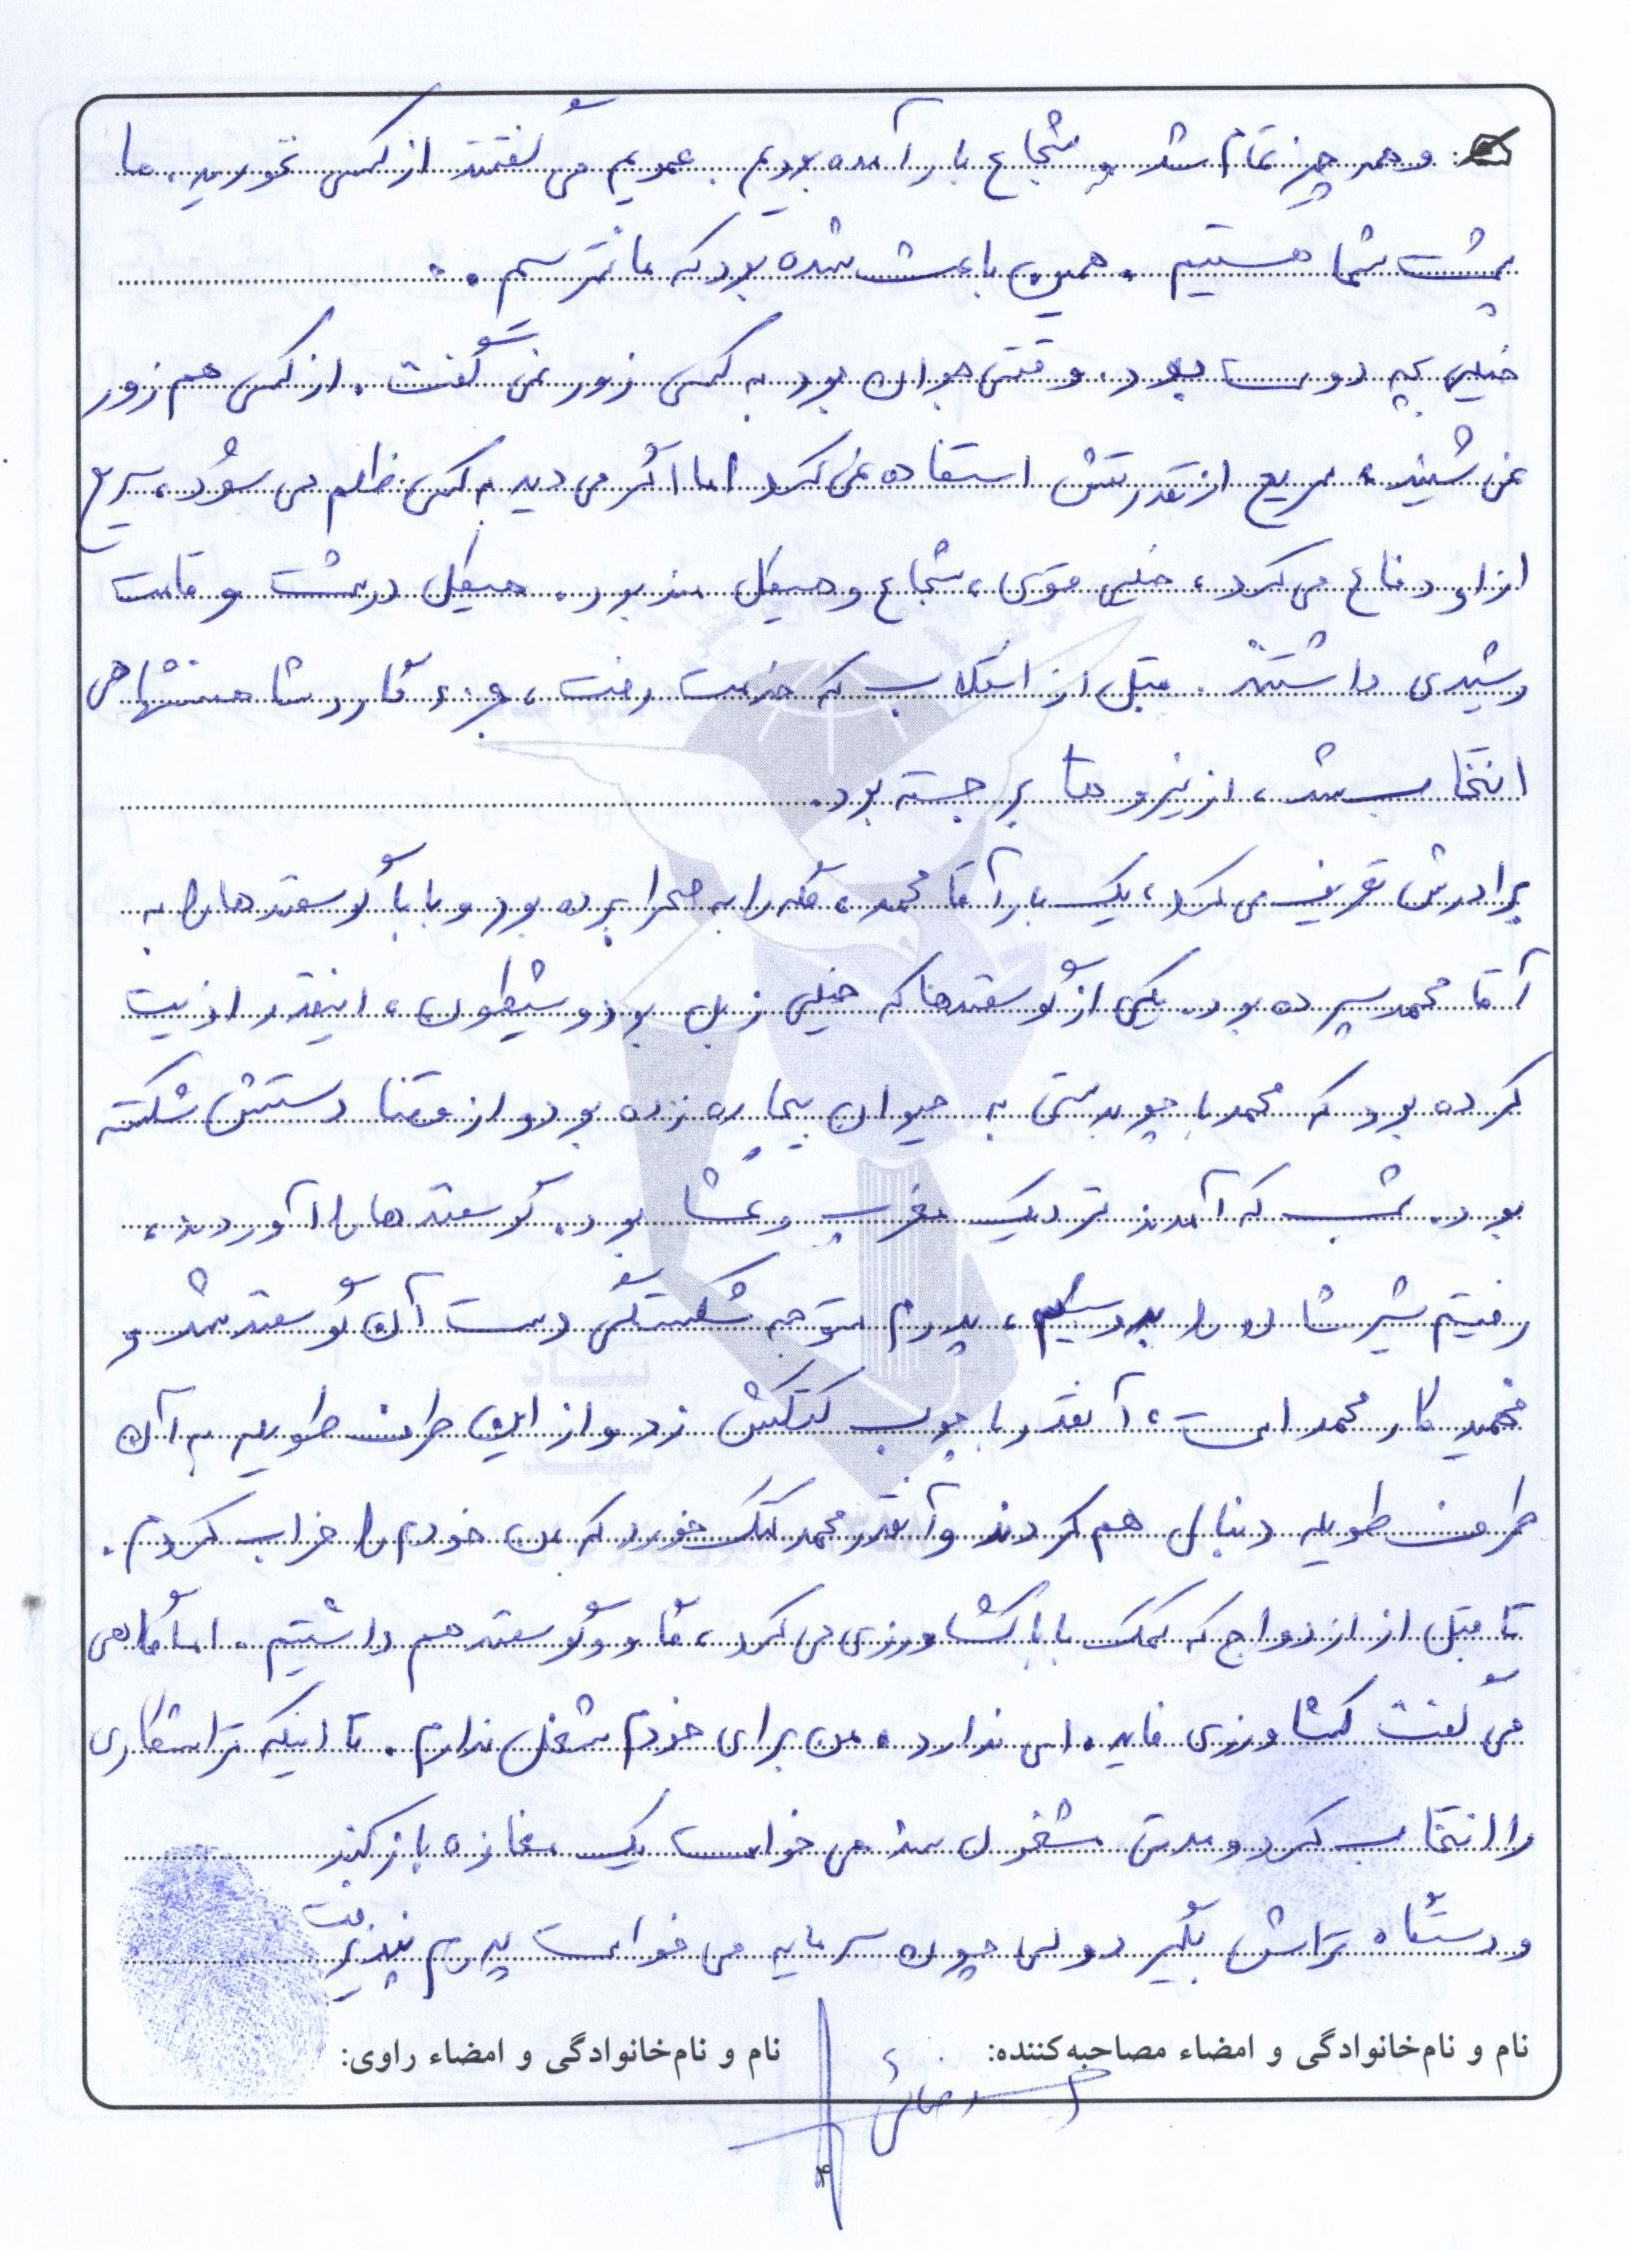 و همه چیز تمام شد و شجاع بار آمده بودیم. عمویم می گفتند از کسی نخورید، ما
پشت شما هستیم. همین باعث شده بود که ما نترسیم.
خیلی بچه دوست بود. وقتی جوان بود به کسی زور نمی گفت. از کسی هم زور
نمی شنید، سریع از قدرتش استفاده نمی کرد اما اگر می دید به کسی ظلم می شود، سریع
از او دفاع می کرد، خیلی قوی، شجاع و هیکل مند بود. هیکل درشت و قامت
رشیدی داشتند. قبل از انقلاب که خدمت رفت، جزء گارد شاهنشاهی
انتخاب شد، از نیروها برجسته بود.
برادرش تعریف می کرد، یک بار آقا محمد، گله را به صحرا برده بود و بابا گوسفندها را به
آقا محمد سپرده بود. یکی از گوسفندها که خیلی زبل بود و شیطون، اینقدر اذیت
کرده بود که محمد با چوبدستی به حیوان بیچاره زده بود و از قضا دستش شکسته
بود. شب که آمدند نزدیک مغرب و عشا بود. گوسفندها را آوردند،
رفتیم شیرشان را بدوشیم، پدرم متوجه شکستگی دست آن گوسفند شد و
فهمید کار محمد است، آنقدر با چوب کتکش زد و از این طرف طویله به آن
طرف طویله دنبال هم کردند و آنقدر محمد کتک خورد که من خودم را خراب کردم.
تا قبل از ازدواج که کمک بابا کشاورزی می کرد، گاو و گوسفند هم داشتیم. اما گاهی
می گفت کشاورزی فایده اس ندارد، من برای خودم شغل ندارم. تا اینکه تراشکاری
را انتخاب کرد و مدتی مشغول شد می خواست یک مغازه باز کند
و دستگاه تراش بگیرد ولی چون سرمایه می خواست پدرم نپذیرفت
نام و نام‌خانوادگی و امضاء مصاحبه‌کننده:
نام و نام‌خانوادگی و امضاء راوی:
۴